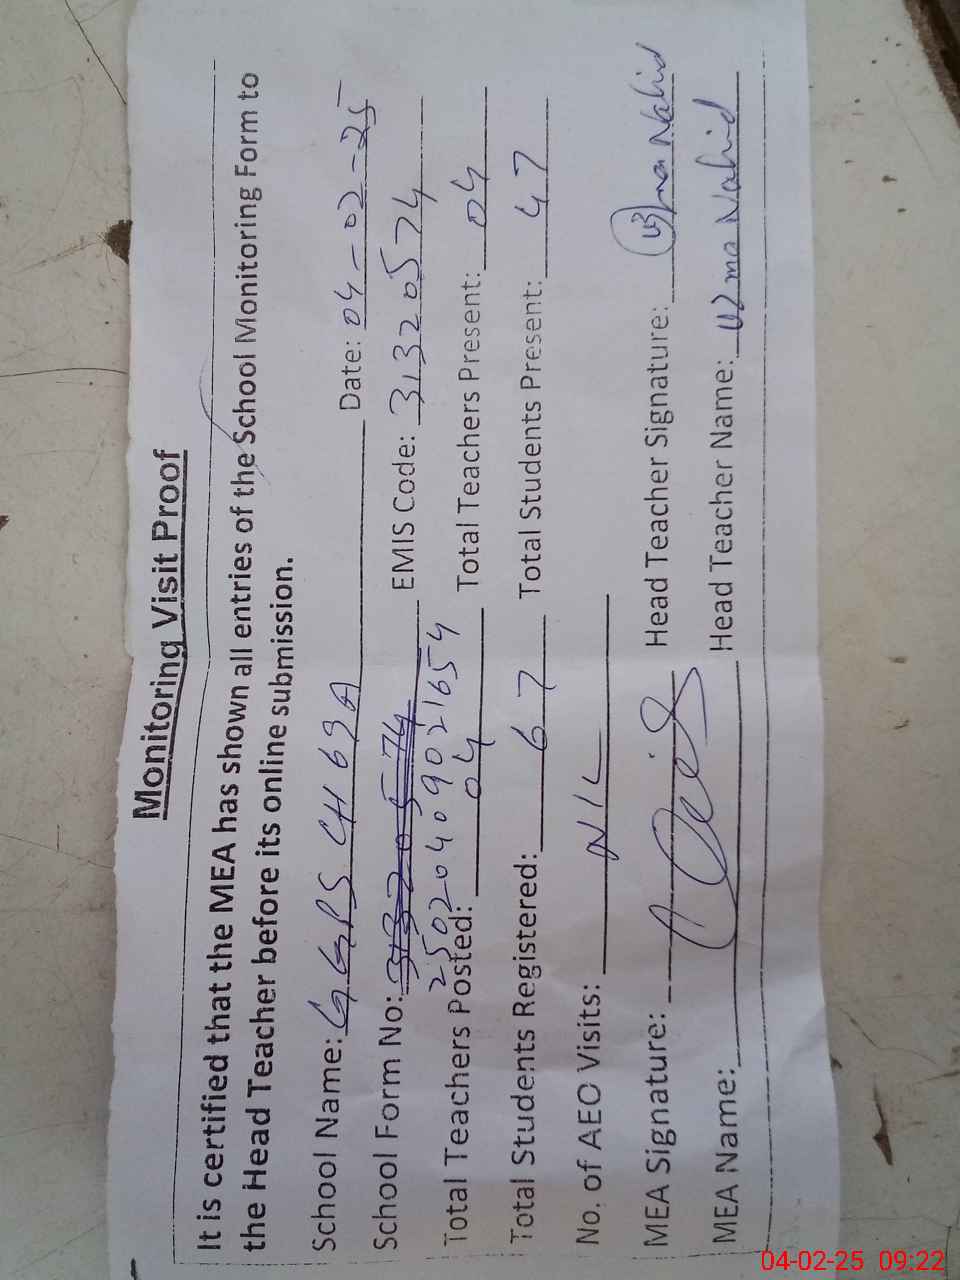 Monitoring Visit Proof
It is certified that the MEA has shown all entries of the School Monitoring Form to
the Head Teacher before its online submission.
School Name: GGPS CH 63A Date: 04-02-25
School Form No: 31320574 EMIS Code: 31320574
25020409021654
Total Teachers Posted: 04 Total Teachers Present: 04
Total Students Registered: 67 Total Students Present: 47
No. of AEO Visits: NIL
MEA Signature: Head Teacher Signature: Uzma Nahid
MEA Name: Head Teacher Name: Uzma Nahid
04-02-25 09:22